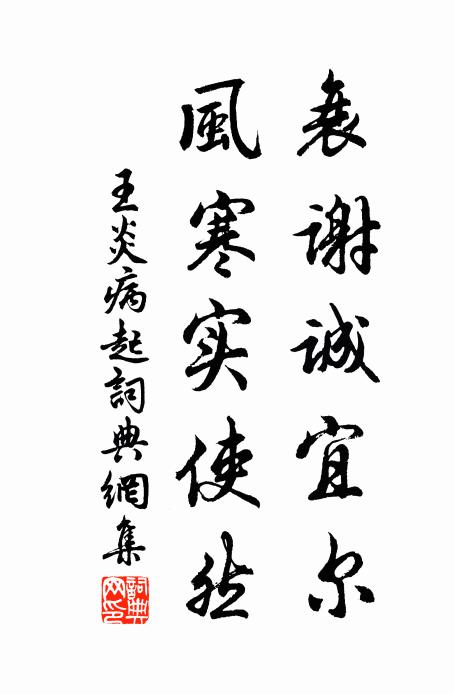 衰谢诚宜尔
風寒实使然
王炎病起詞典網集
詞典網印